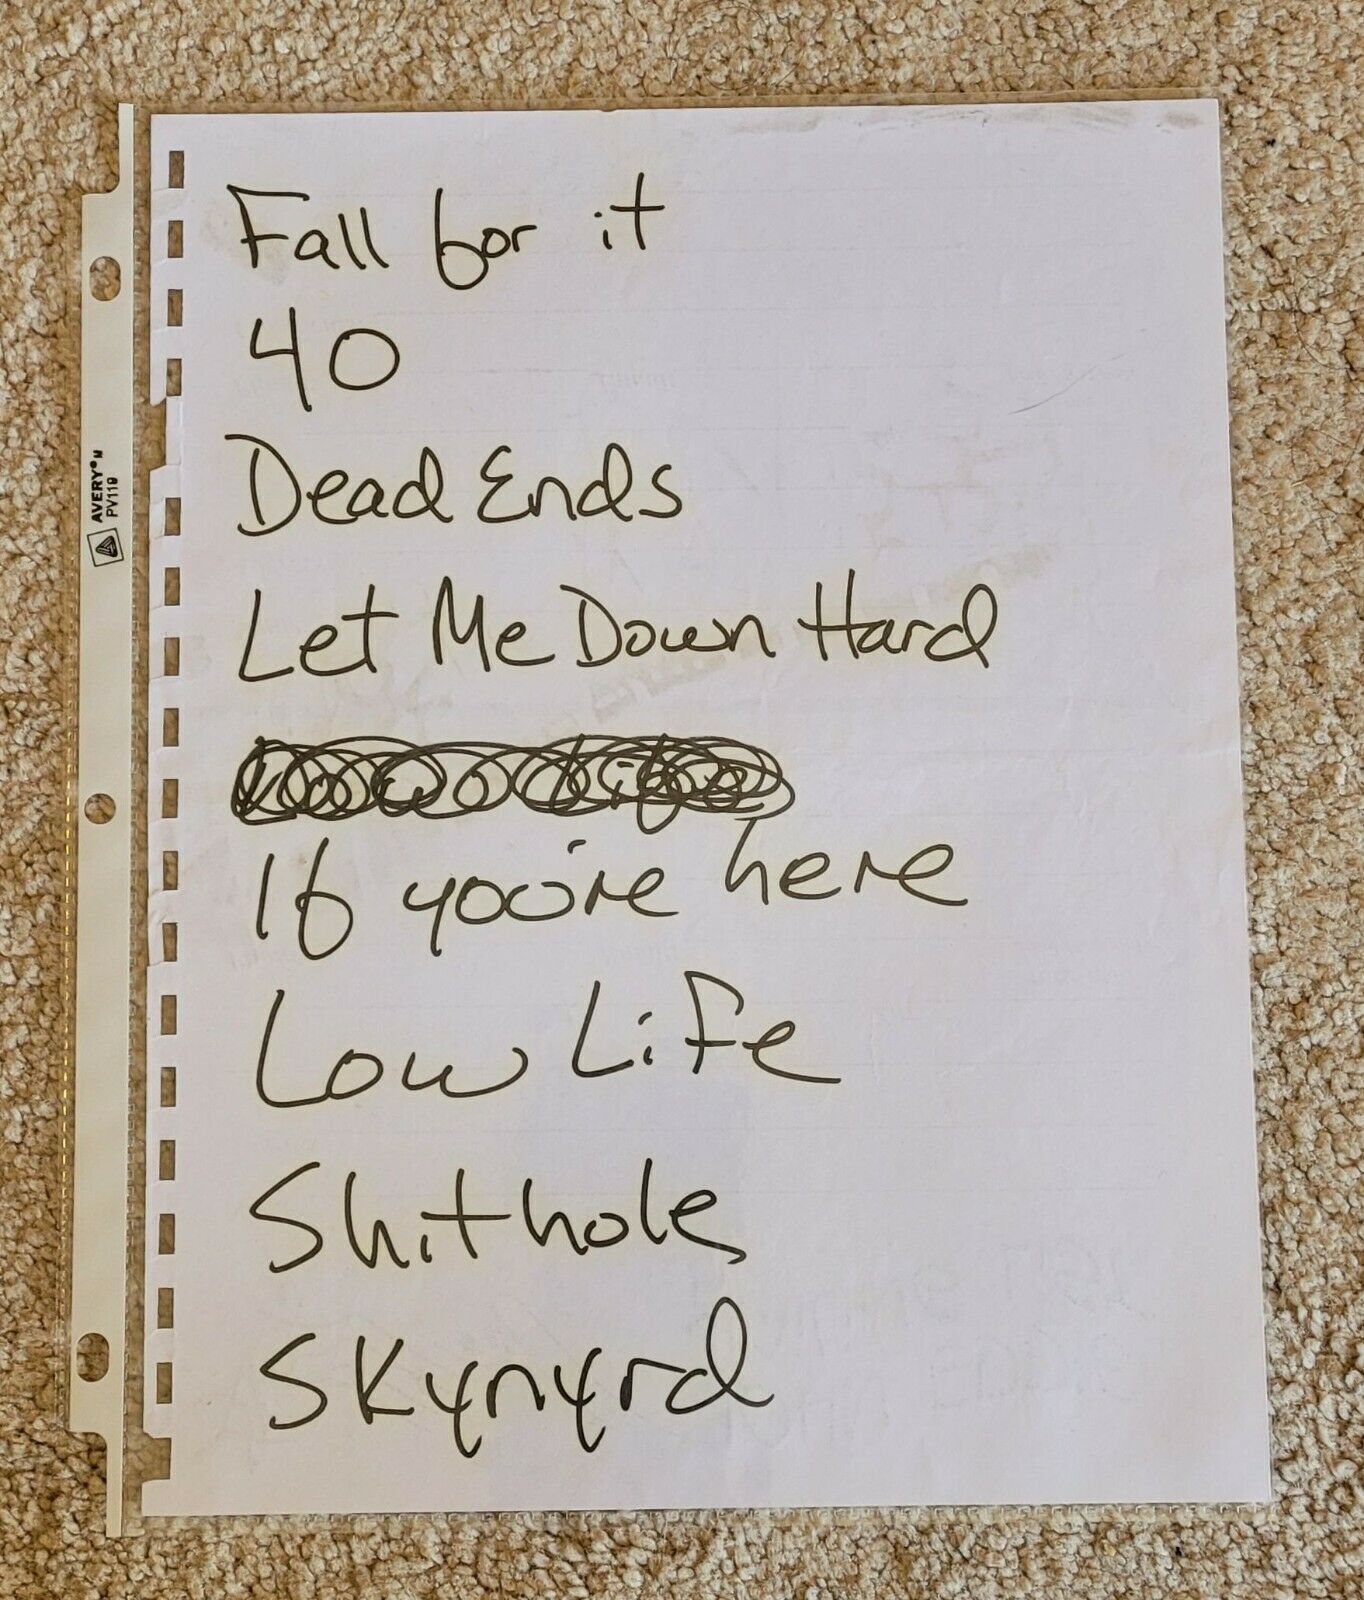 Fall for it
40
Dead Ends
Let Me Down Hard
Low Life
If you're here
Low Life
Shithole
Skynyrd
AVERY® M
PV119